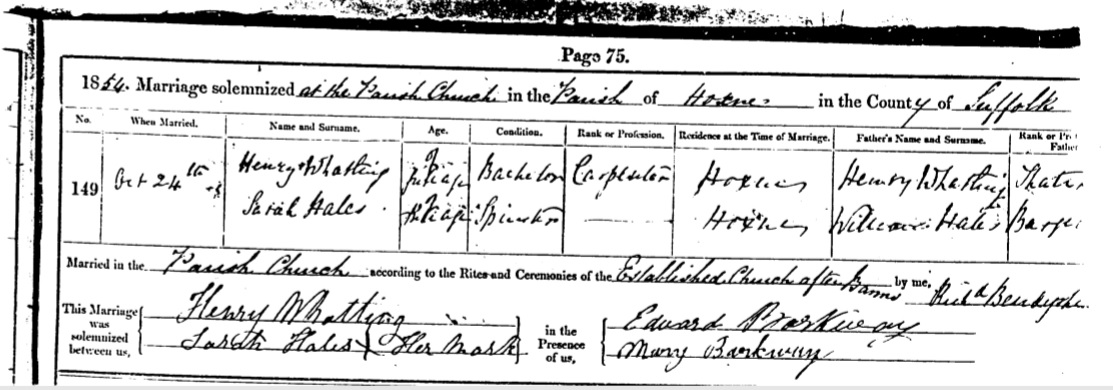 Page 75.
1854. Marriage solemnized at the Parish Church in the Parish of Hoxne in the County of Suffolk
No. When Married. Name and Surname. Age. Condition. Rank or Profession. Residence at the Time of Marriage. Father's Name and Surname. Rank or Pro Father
149 Oct 24th Henry Whatting Full age Bachelor Carpenter Hoxne Henry Whatting
Sarah Hales Full age Spinster Hoxne William Hales
Married in the Parish Church according to the Rites and Ceremonies of the Established Church after Banns by me,
This Marriage was solemnized between us,
Henry Whatting
Sarah Hales Her Mark
in the Presence of us,
Edward Barkway
Mary Barkway